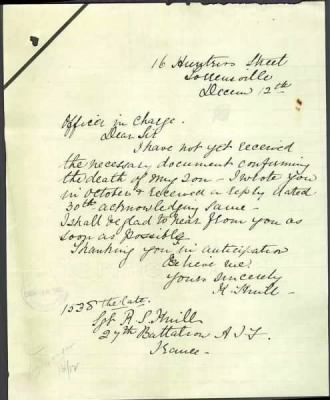 16 Hunters Street
Decem 12th
Officer in Charge.
Dear Sir
I have not yet received
the necessary document confirming
the death of my son – I wrote you
in October & received a reply dated
30th acknowledging same –
I shall be glad to hear from you as
soon as possible
Thanking you in anticipation
Believe me
Yours sincerely
1538 The late.
Sgt. R. S.
27th Battalion A I F.
France –